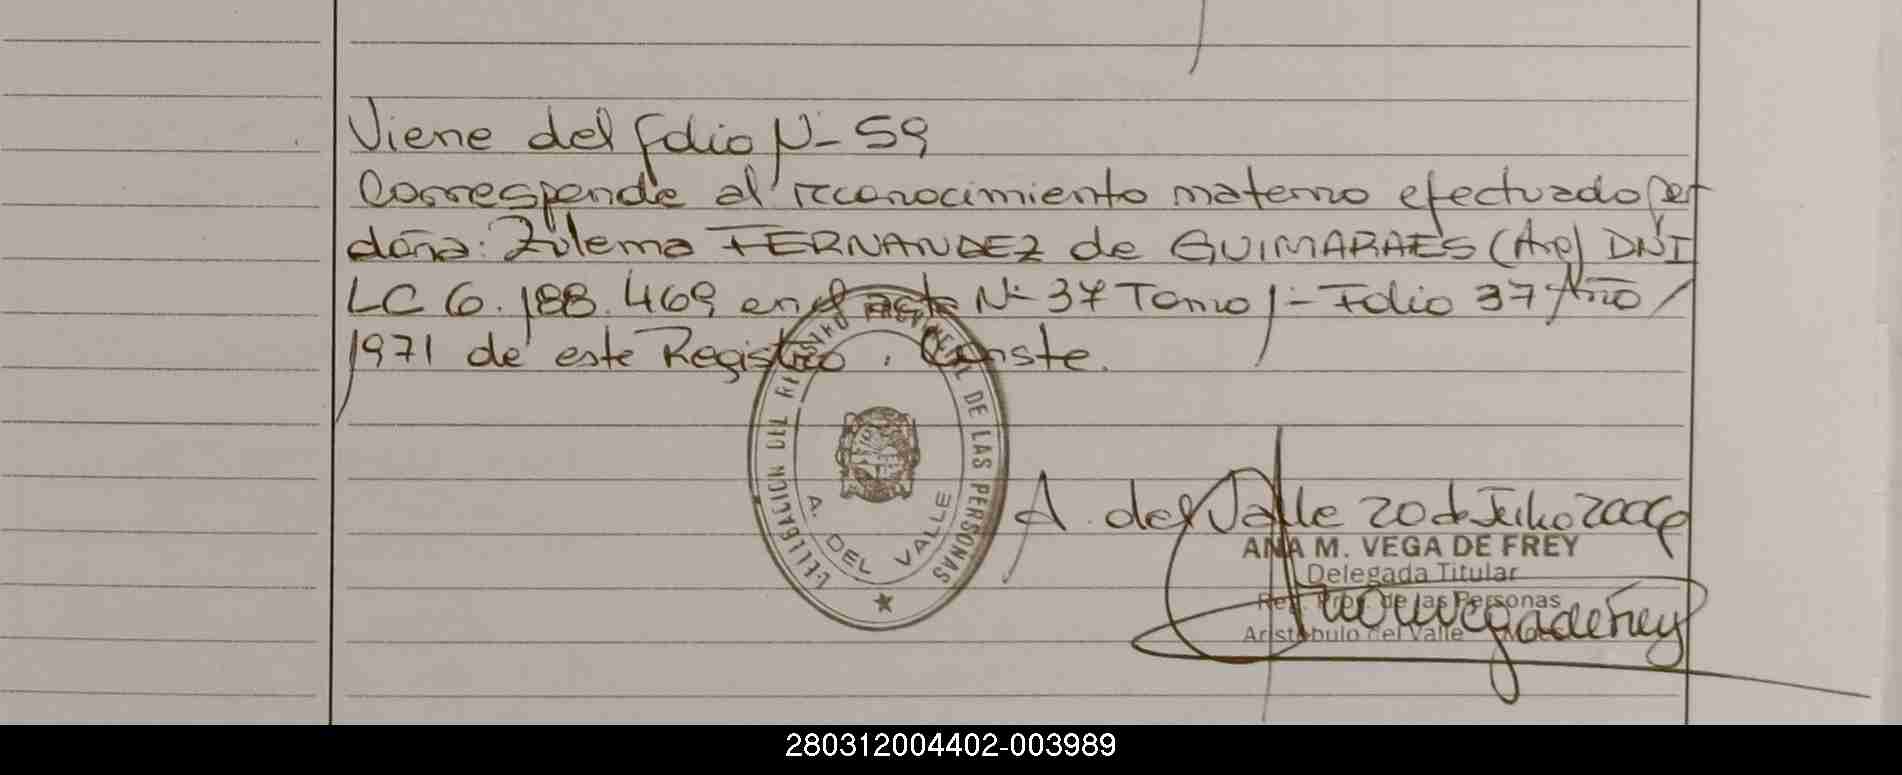 Viene del folio N- 59
Corresponde al reconocimiento materno efectuado por
doña: Zulema FERNANDEZ de GUIMARAES (Arg) DNI
LC 6.188.469 en el acta N- 37 Tomo 1- Folio 37 Año
1971 de este Registro. Conste.
DELEGACION DEL REGISTRO PROVINCIAL DE LAS PERSONAS
A. DEL VALLE
A. del Valle 20 de Julio 2006
ANA M. VEGA DE FREY
Delegada Titular
Reg. Prov. de las Personas
Aristóbulo del Valle
Ana Vega de Frey
280312004402-003989